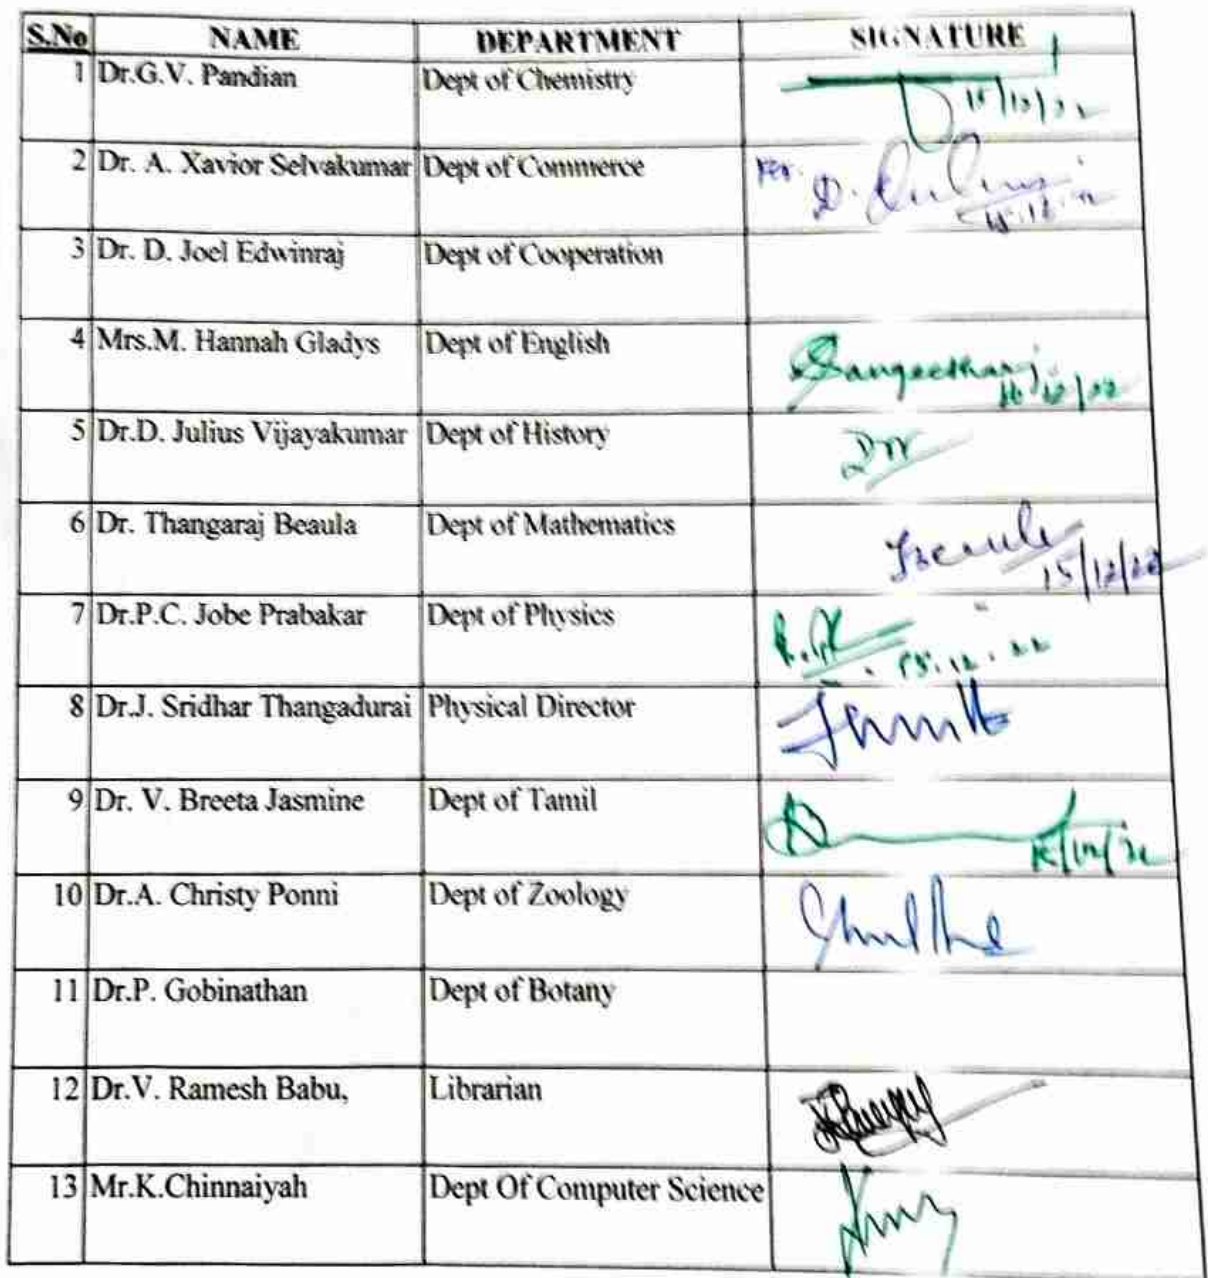 S.No NAME DEPARTMENT SIGNATURE
1 Dr.G.V. Pandian Dept of Chemistry
15/12/22
2 Dr. A. Xavior Selvakumar Dept of Commerce
for. D.
15.12.22
3 Dr. D. Joel Edwinraj Dept of Cooperation
4 Mrs.M. Hannah Gladys Dept of English
Sangeetharaj
5 Dr.D. Julius Vijayakumar Dept of History
6 Dr. Thangaraj Beaula Dept of Mathematics
15/12/22
7 Dr.P.C. Jobe Prabakar Dept of Physics
15.12.22
8 Dr.J. Sridhar Thangadurai Physical Director
9 Dr. V. Breeta Jasmine Dept of Tamil
15/12/22
10 Dr.A. Christy Ponni Dept of Zoology
11 Dr.P. Gobinathan Dept of Botany
12 Dr.V. Ramesh Babu, Librarian
13 Mr.K.Chinnaiyah Dept Of Computer Science